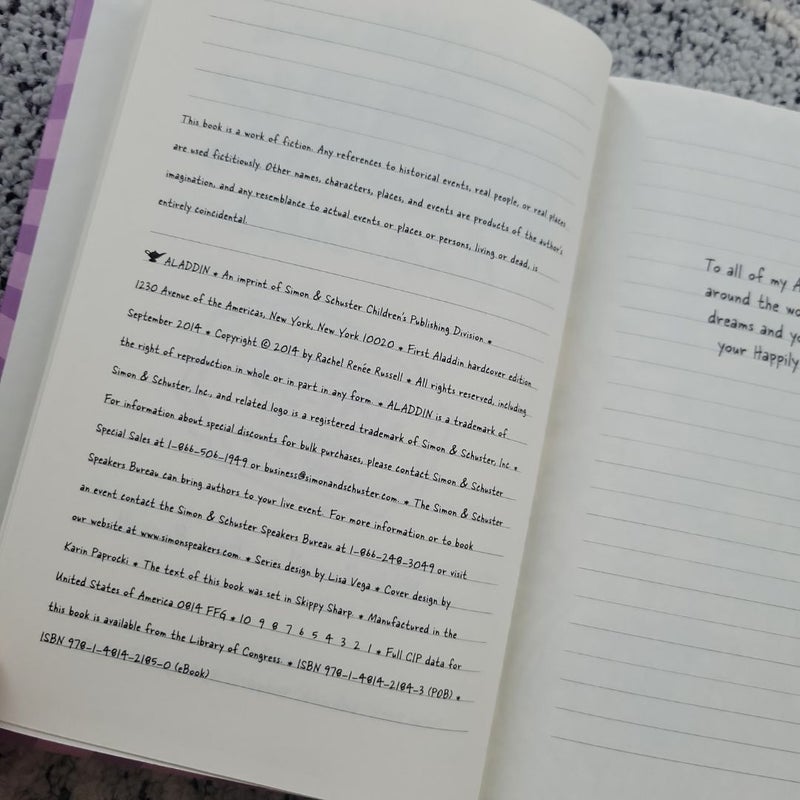 This book is a work of fiction. Any references to historical events, real people, or real places
are used fictitiously. Other names, characters, places, and events are products of the author's
imagination, and any resemblance to actual events or places or persons, living or dead, is
entirely coincidental.
ALADDIN * An imprint of Simon & Schuster Children's Publishing Division *
1230 Avenue of the Americas, New York, New York 10020 * First Aladdin hardcover edition
September 2014 * Copyright © 2014 by Rachel Renée Russell * All rights reserved, including
the right of reproduction in whole or in part in any form. * ALADDIN is a trademark of
Simon & Schuster, Inc., and related logo is a registered trademark of Simon & Schuster, Inc. *
For information about special discounts for bulk purchases, please contact Simon & Schuster
Special Sales at 1-866-506-1949 or business@simonandschuster.com. * The Simon & Schuster
Speakers Bureau can bring authors to your live event. For more information or to book
an event contact the Simon & Schuster Speakers Bureau at 1-866-248-3049 or visit
our website at www.simonspeakers.com. * Series design by Lisa Vega * Cover design by
Karin Paprocki * The text of this book was set in Skippy Sharp. * Manufactured in the
United States of America 0814 FFG * 10 9 8 7 6 5 4 3 2 1 * Full CIP data for
this book is available from the Library of Congress. * ISBN 978-1-4814-2184-3 (POB) *
ISBN 978-1-4814-2185-0 (eBook)
To all of my A
around the wo
dreams and yo
your Happily